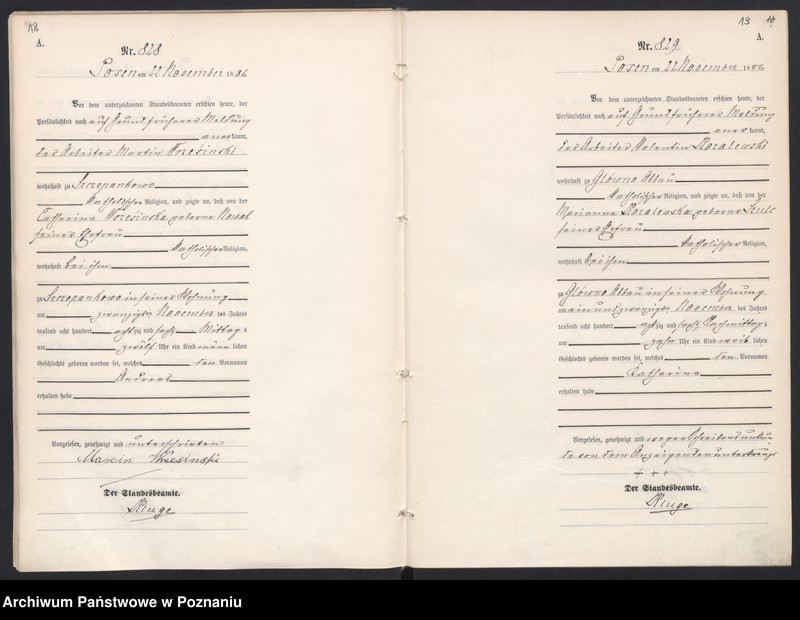 18
A.
Nr. 828
Posen am 22 November 1886
Vor dem unterzeichneten Standesbeamten erschien heute, der
Persönlichkeit nach auf Grund früherer Meldung
anerkannt,
der Arbeiter Martin Wrzesinski
wohnhaft zu Szczepankowo
katholischer Religion, und zeigte an, daß von der
Catharina Wrzesinska geborne Nowak
seiner Ehefrau
katholischer Religion,
wohnhaft bei ihm
zu Szczepankowo in seiner Wohnung
am zwanzigsten November des Jahres
tausend acht hundert achtzig und sechs Mittags
um zwölf Uhr ein Kind männlichen
Geschlechts geboren worden sei, welches den Vornamen
Andreas
erhalten habe
Vorgelesen, genehmigt und unterschrieben
Marcin
Der Standesbeamte.
Kluge
13
A.
Nr. 829
Posen am 22 November 1886
Vor dem unterzeichneten Standesbeamten erschien heute, der
Persönlichkeit nach auf Grund früherer Meldung
anerkannt,
der Arbeiter Valentin Kozalewski
wohnhaft zu Glowno Abbau
katholischer Religion, und zeigte an, daß von der
Marianna Kozalewska geborne Szulc
seiner Ehefrau
katholischer Religion,
wohnhaft bei ihm
zu Glowno Abbau in seiner Wohnung
am ein und zwanzigsten November des Jahres
tausend acht hundert achtzig und sechs Nachmittags
um zehn Uhr ein Kind weiblichen
Geschlechts geboren worden sei, welches den Vornamen
Catharina
erhalten habe
Vorgelesen, genehmigt und wegen Schreibensunkun
de von dem Anzeigenden unterkreuzt
+ + +
Der Standesbeamte.
Kluge
Archiwum Państwowe w Poznaniu